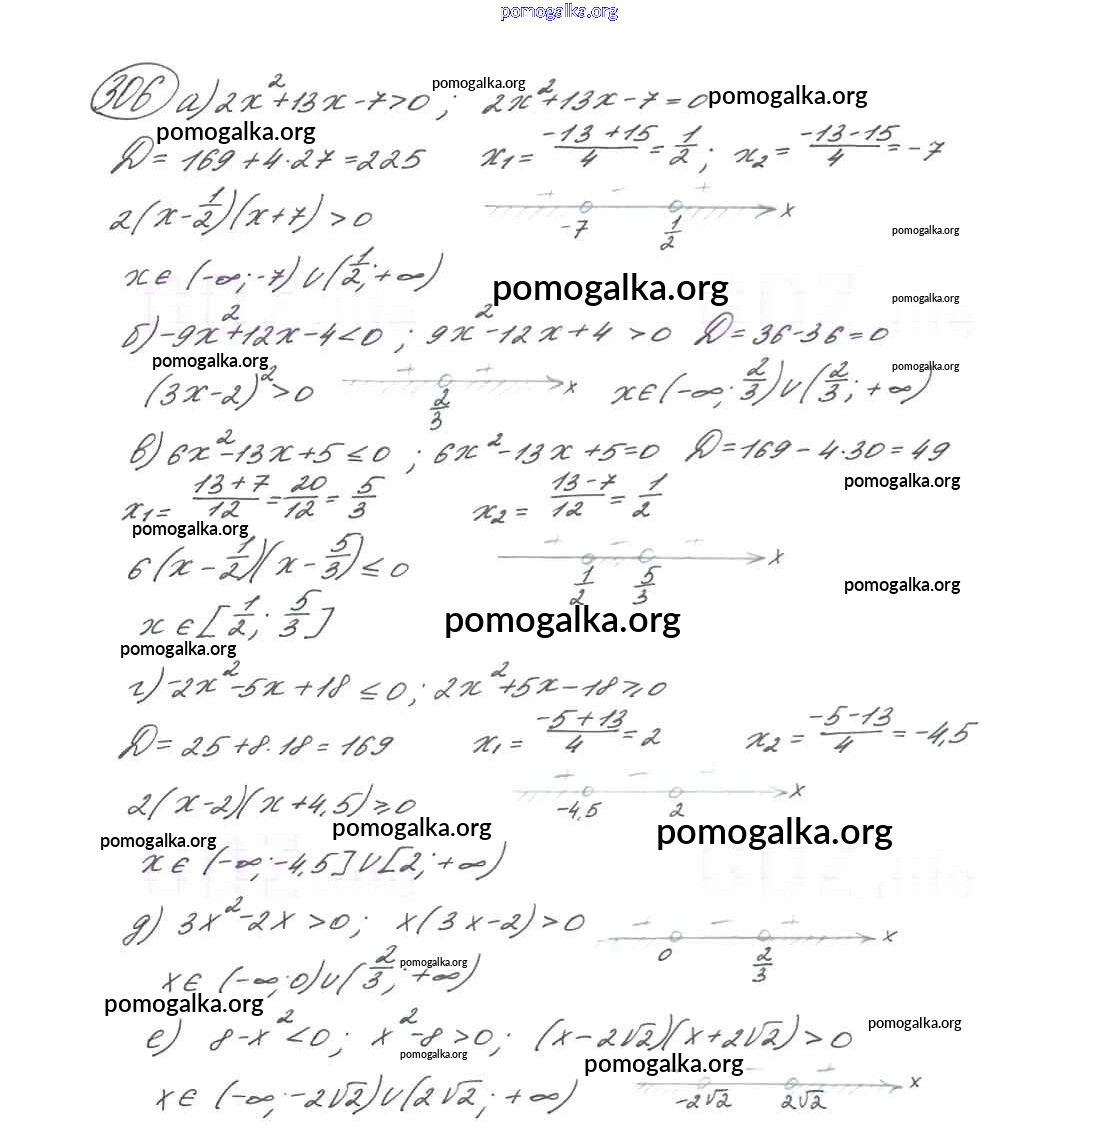 pomogalka.org
306 а) 2x²+13x-7>0 ; 2x²+13x-7=0 pomogalka.org pomogalka.org
pomogalka.org
D=169+4·27=225 x₁= (-13+15)/4 = 1/2 ; x₂= (-13-15)/4 = -7
2(x-1/2)(x+7)>0 + - + -7 1/2 x
pomogalka.org
x∈(-∞;-7)∪(1/2;+∞) pomogalka.org pomogalka.org
б) -9x²+12x-4<0 ; 9x²-12x+4>0 D=36-36=0
pomogalka.org pomogalka.org
(3x-2)²>0 + + 2/3 x x∈(-∞;2/3)∪(2/3;+∞)
в) 6x²-13x+5≤0 ; 6x²-13x+5=0 D=169-4·30=49
pomogalka.org
x₁= (13+7)/12 = 20/12 = 5/3 x₂= (13-7)/12 = 1/2
pomogalka.org
6(x-1/2)(x-5/3)≤0 + - + 1/2 5/3 x
pomogalka.org
x∈[1/2;5/3] pomogalka.org
pomogalka.org
г) -2x²-5x+18≤0; 2x²+5x-18≥0
D=25+8·18=169 x₁= (-5+13)/4 = 2 x₂= (-5-13)/4 = -4,5
2(x-2)(x+4,5)≥0 + - - -4,5 2 x
pomogalka.org pomogalka.org pomogalka.org
x∈(-∞;-4,5]∪[2;+∞)
д) 3x²-2x>0; x(3x-2)>0 + - + 0 2/3 x
x∈(-∞;0)∪(2/3;+∞) pomogalka.org
pomogalka.org
е) 8-x²<0; x²-8>0; (x-2√2)(x+2√2)>0 pomogalka.org
pomogalka.org pomogalka.org
x∈(-∞;-2√2)∪(2√2;+∞) - + -2√2 2√2 x